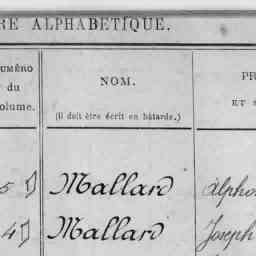 RE ALPHABETIQUE.
UMÉRO
du
olume.
NOM.
(il doit être écrit en bâtarde.)
PR
ET
5 Mallard Alpho
4 Mallard Joseph